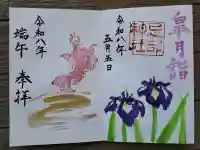 皐月詣
令和八年
五月五日
令和八年
端午
奉拝